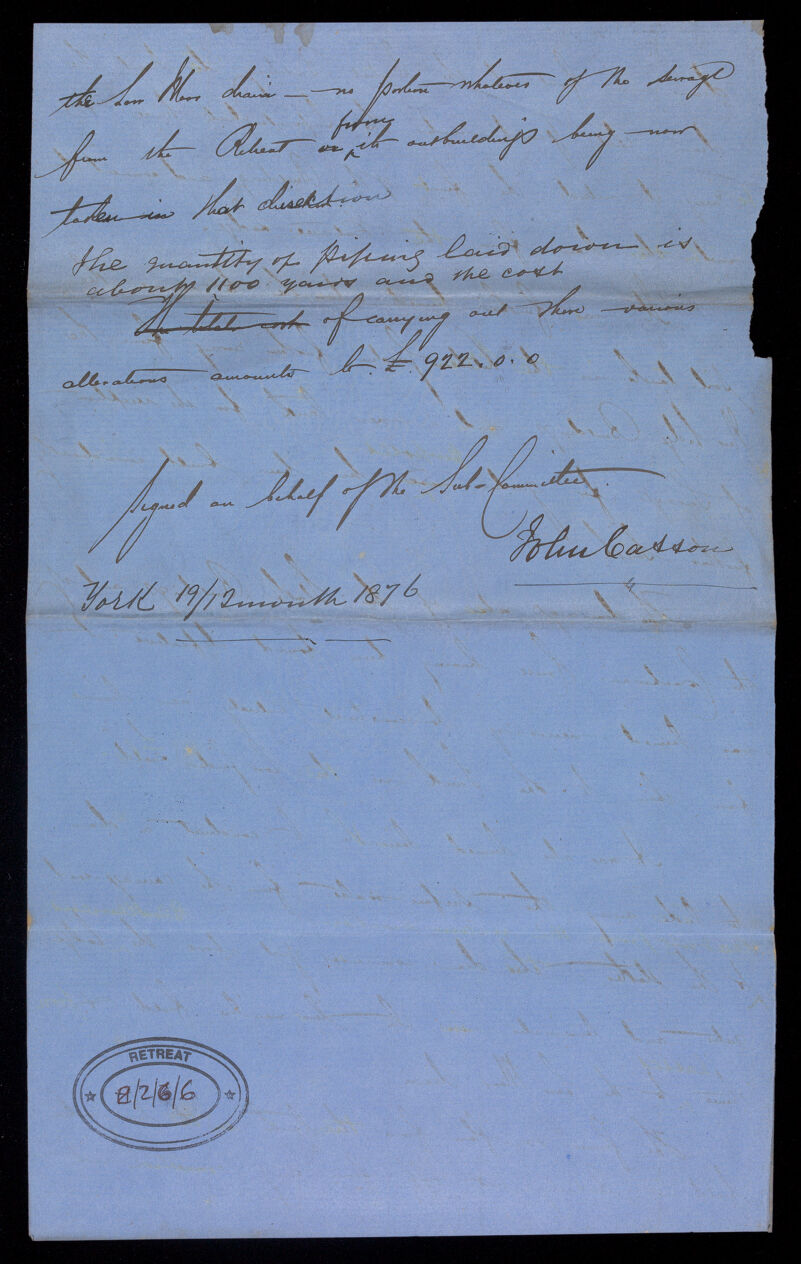 the Low Moor drain — no portion whatever of the sewage
from the Retreat or from its outbuildings being now
taken in that direction
The quantity of Piping laid down is
about 1100 yards and the cost
The total cost of carrying out these various
alterations amounts to £922.0.0
Signed on behalf of the Sub-Committee.
John Casson
York 19/12 month 1876
RETREAT
2/6/6